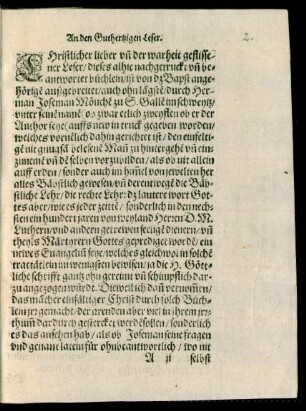 An den Guthertzigen Leser.
2.
CHristlicher lieber vñ der warheit geflisse-
ner Leser/ dieses alhie nachgetruckt vñ be-
antwortet büchlein/ ist von dz Bapst ange-
hörige außgebreitet/ auch ohn lägste/ durch Her-
man Joseman Mönche zu S. Galle im schweytz/
vnter seine namē/ ob zwar etlich zweyflen ob er der
Author seye/ auffs new in truck gegeben worden/
welches vornēlich dahin gerichtet ist/ den einfelti-
gē nit gnugsā belesenē Mañ zu hintergehē vñ ein-
zunemē vñ dē selben vorzubilden/ als ob nit allein
auff erden/ sonder auch im himel von jewelten her
alles Bäbstlich gewesen/ vñ derentwegē die Bäb-
stliche Lehr/ die rechte Lehr: dz lautere wort Got-
tes aber/ wie es jeder zeitē/ sonderlich in dē nech-
sten ein hundert jaren von weyland Herren D. M.
Luthern/ vnd andern getrewen seeligē dienern/ vñ
theyls Märtyrern Gottes geprediget wordē/ ein
newes Euangeliū seye/ welches gleichwol in solchē
tractätlein im wenigsten bewisen/ ja die H. Gött-
liche schrifft gantz ohngereimt vñ schimpflich dar-
zu angezogen würdt. Dieweil dañ vernommen/
das mācher einfältiger Christ durch solch Büch-
lein jrr gemacht/ der grenden aber viel in jhrem jrr-
thuṁ dardurch gestercket werdē sollen/ sonderlich
es das ansehen hab/ als ob Joseman seine fragen
vnd genant latein für ohnbeantwortlich/ wo nit
A ij
selbst